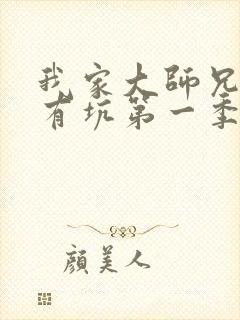 我家大師兄
有坑第一季
顏美人